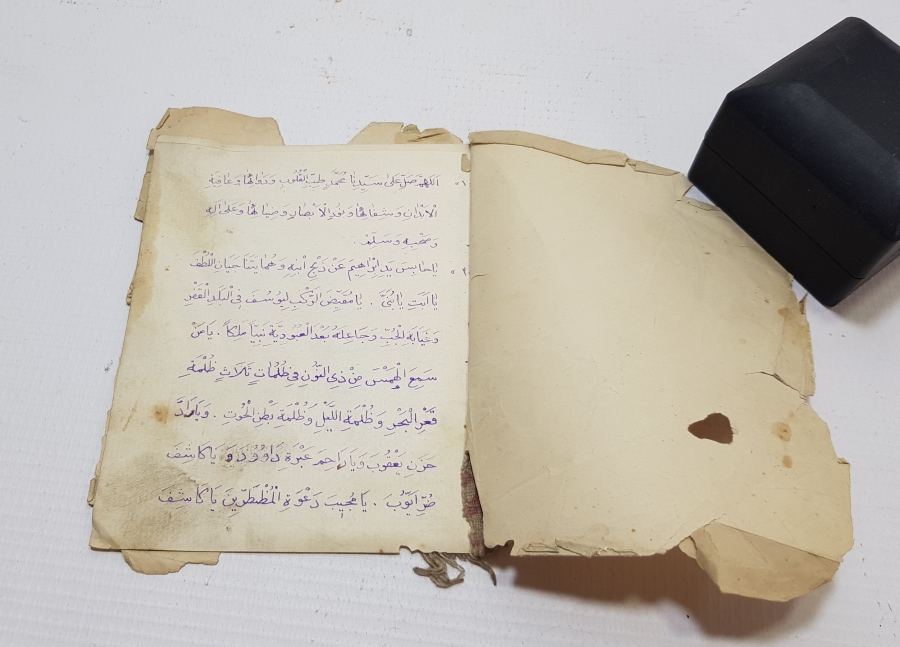 ١٠ اَللّٰهُمَّ صَلِّ عَلٰى سَيِّدِنَا مُحَمَّدٍ طِبِّ الْقُلُوْبِ وَدَوَائِهَا وَعَافِيَةِ
الْاَبْدَانِ وَشِفَائِهَا وَنُوْرِ الْاَبْصَارِ وَضِيَائِهَا وَعَلٰى اٰلِهِ
وَصَحْبِهِ وَسَلِّمْ .
١٠ يَا حَابِسَ يَدِ اِبْرَاهِيْمَ عَنْ ذَبْحِ ابْنِهِ وَهُمَا يَتَنَاجَيَانِ اللُّطْفَ
يَا اَبَتِ يَا بُنَيَّ . يَا مُقَيِّضَ الرَّكْبِ لِيُوْسُفَ فِى الْبَلَدِ الْقَفْرِ
وَغَيَابَةِ الْجُبِّ وَجَاعِلَهُ بَعْدَ الْعُبُوْدِيَّةِ نَبِيًّا مَلِكًا . يَا مَنْ
سَمِعَ الْهَمْسَ مِنْ ذِى النُّوْنِ فِى ظُلُمَاتٍ ثَلَاثٍ ظُلْمَةِ
قَعْرِ الْبَحْرِ وَظُلْمَةِ اللَّيْلِ وَظُلْمَةِ بَطْنِ الْحُوْتِ . وَيَا رَادَّ
حُزْنِ يَعْقُوْبَ وَيَا رَاحِمَ عَبْرَةِ دَاوُوْدَ وَ يَا كَاشِفَ
ضُرِّ اَيُّوْبَ . يَا مُجِيْبَ دَعْوَةِ الْمُضْطَرِّيْنَ يَا كَاشِفَ